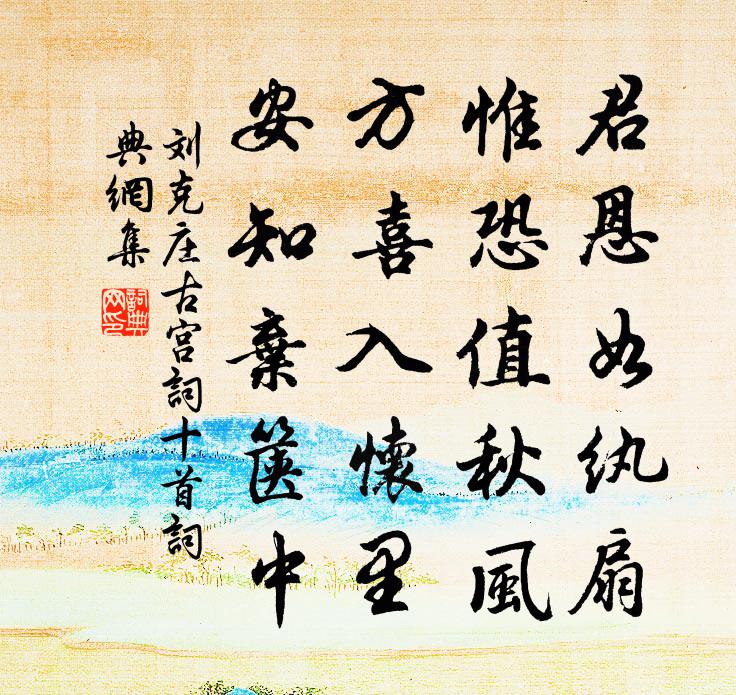 君恩如纨扇
惟恐值秋風
方喜入懷里
安知棄箧中
刘克庄古宫詞十首詞
典網集
詞典网印